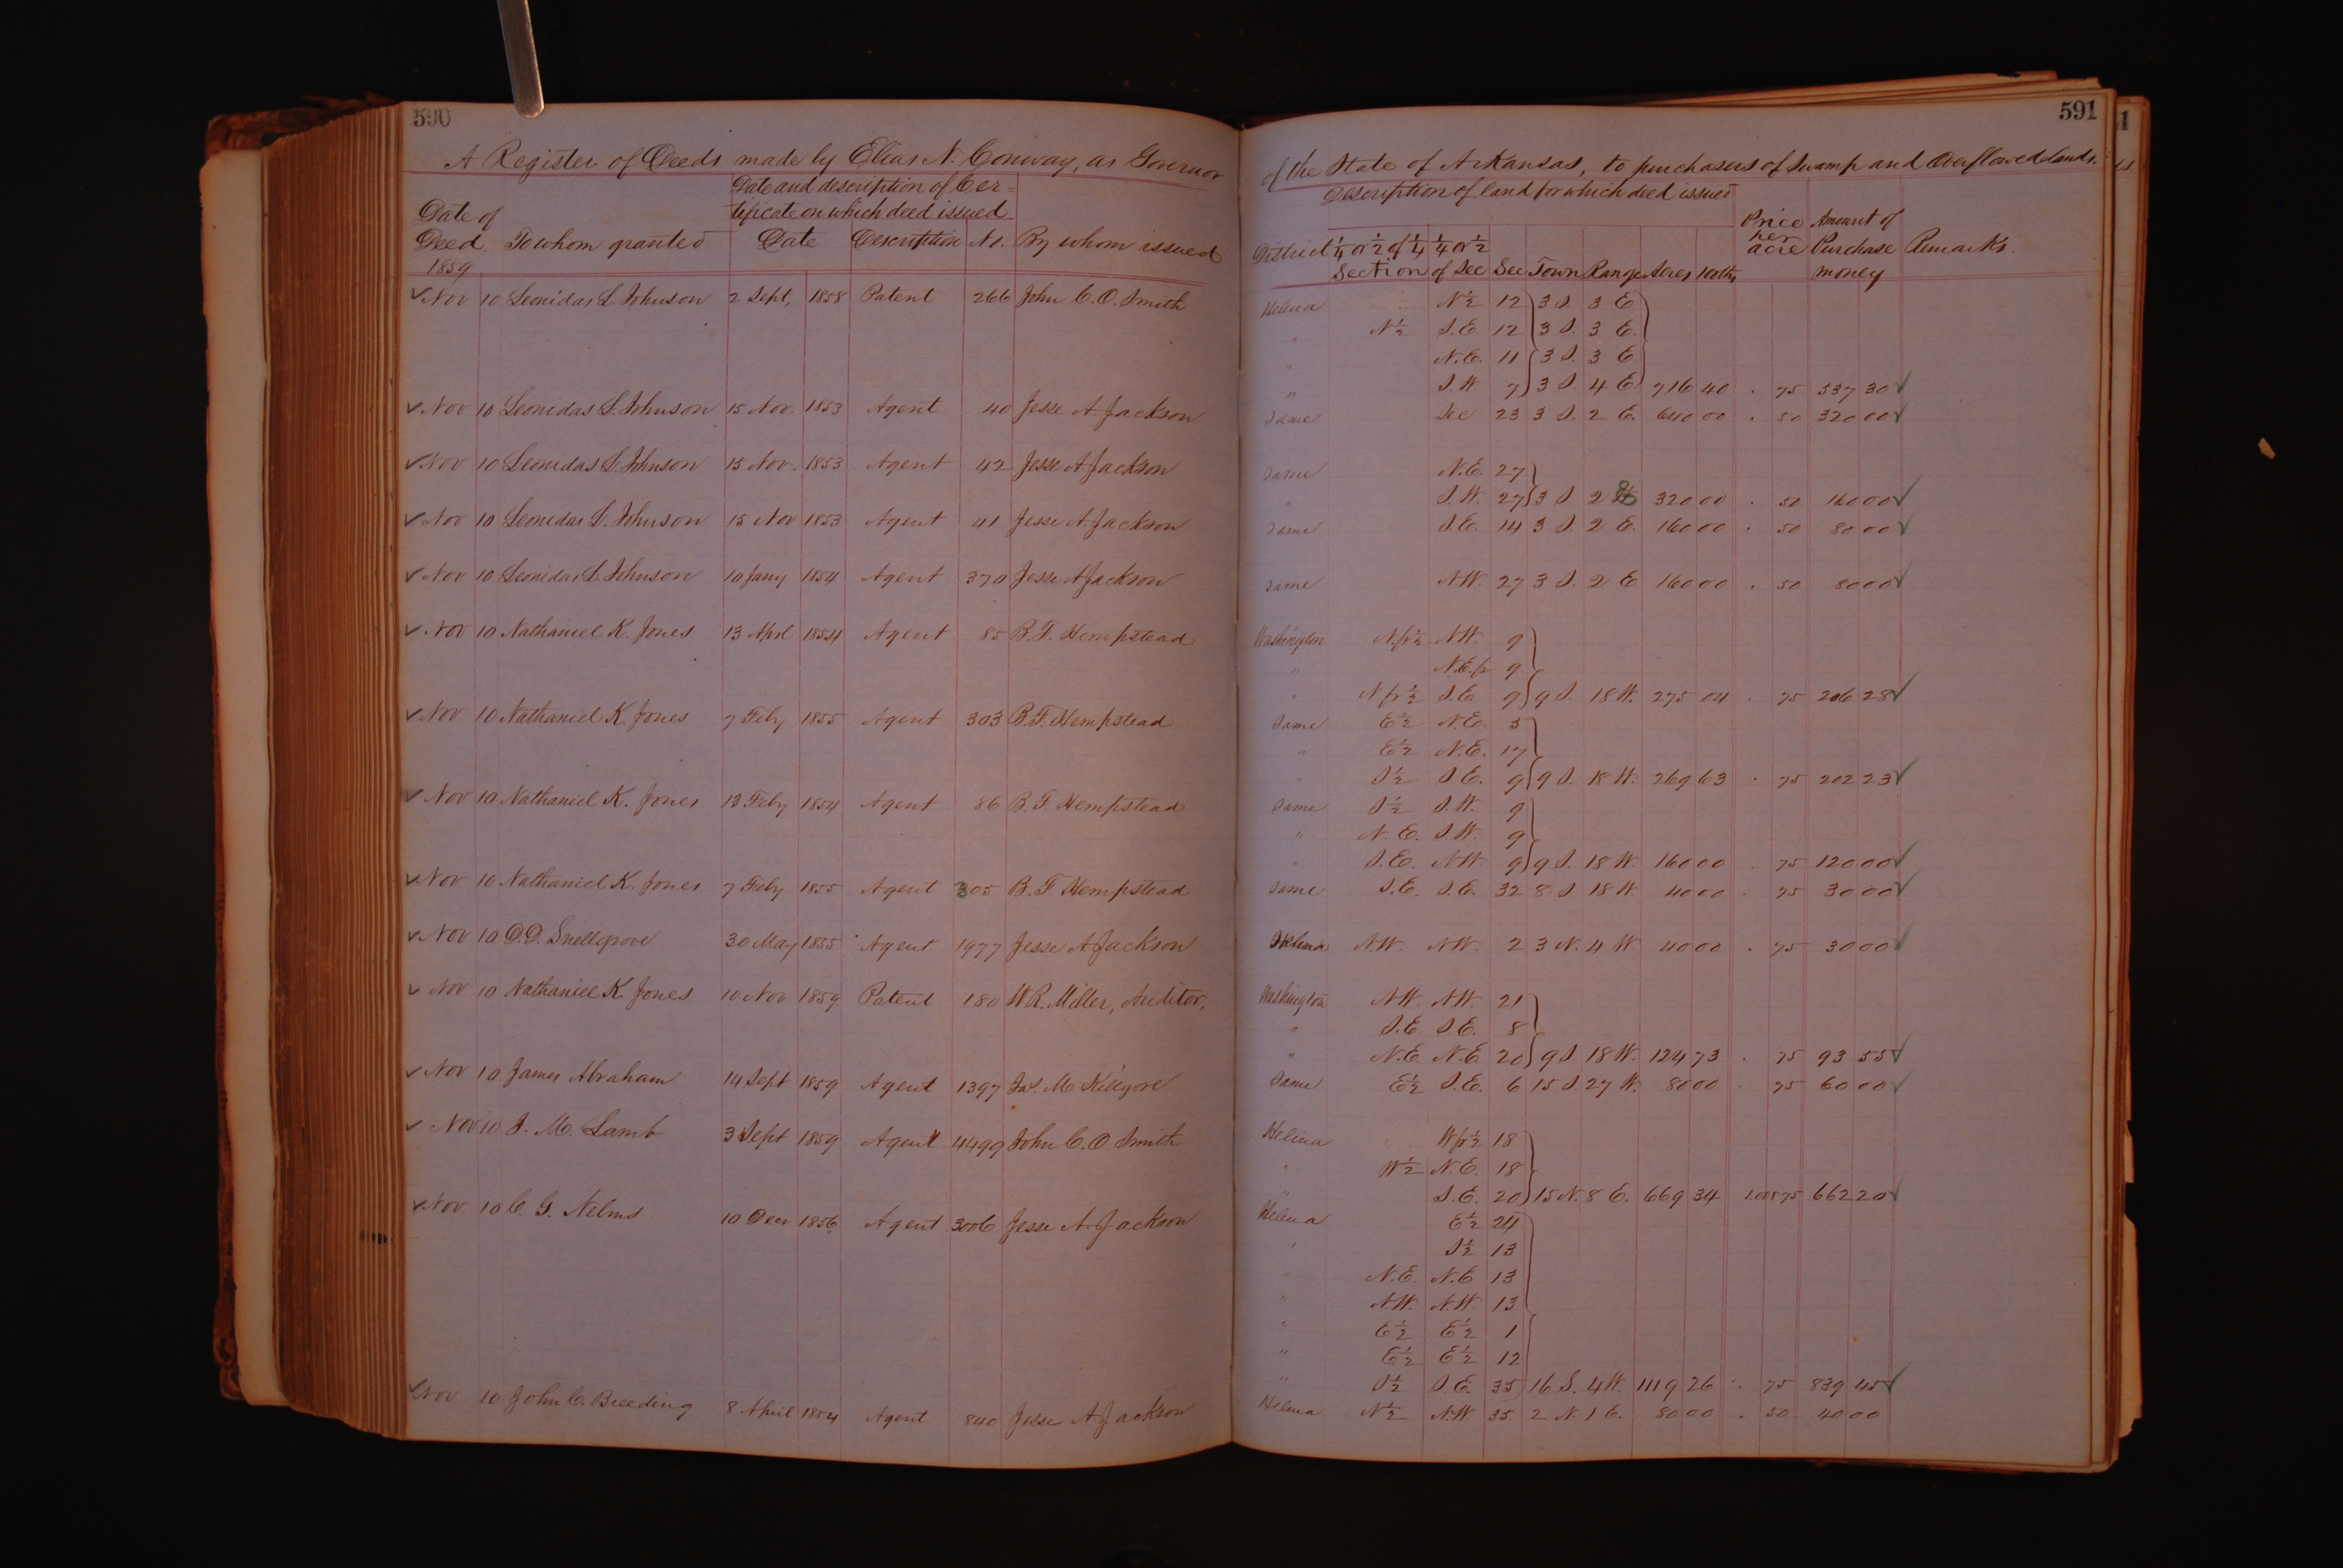 590
A Register of Deeds made by Elias N. Conway, as Governor
Date and description of Cer=
tificate on which deed issued
Date of
Deed. To whom granted Date Description No. By whom issued
1859
✓ Nov 10 Leonidas L. Johnson 2 Sept, 1858 Patent 266 John C. O. Smith
✓ Nov 10 Leonidas L. Johnson 15 Nov. 1853 Agent 40 Jesse A. Jackson
✓ Nov 10 Leonidas L. Johnson 15 Nov. 1853 Agent 42 Jesse A Jackson
✓ Nov 10 Leonidas L. Johnson 15 Nov 1853 Agent 41 Jesse A Jackson
✓ Nov 10 Leonidas L. Johnson 10 Jany 1854 Agent 370 Jesse A Jackson
✓ Nov 10 Nathaniel K. Jones 13 Aprl 1854 Agent 85 B. F. Hempstead
✓ Nov 10 Nathaniel K. Jones 7 Feby 1855 Agent 303 B. F. Hempstead
✓ Nov 10 Nathaniel K. Jones 13 Feby 1854 Agent 86 B. F. Hempstead
✓ Nov 10 Nathaniel K. Jones 7 Feby 1855 Agent 305 B. F Hempstead
✓ Nov 10 D. D. Snellgrove 30 May 1855 Agent 1977 Jesse A Jackson
✓ Nov 10 Nathaniel K. Jones 10 Nov 1859 Patent 180 W R. Miller, Auditor,
✓ Nov 10 James Abraham 14 Sept 1859 Agent 1397 Jas. M. Killgore
✓ Nov 10 J. M. Lamb 3 Sept 1859 Agent 4499 John C. O. Smith
✓ Nov 10 C. G. Nelms 10 Decr 1856 Agent 3006 Jesse A. Jackson
✓ Nov 10 John C. Breeding 8 April 1854 Agent 840 Jesse A Jackson
591
of the State of Arkansas, to purchasers of Swamp and Overflowed Lands.
Description of land for which deed issued
District 1/4 or 1/2 of 1/4 Section 1/4 or 1/2 of Sec Sec Town Range Acres 100ths Price per acre Amount of Purchase money Remarks.
Helena N 1/2 12 3 S. 3 E
" N 1/2 S.E. 12 3 S. 3 E.
" N.E. 11 3 S. 3 E
" S.W. 7 3 S. 4 E 716 40 . 75 537 30 ✓
Same Sec 23 3 S. 2 E. 640 00 . 50 320 00 ✓
Same N.E. 27
" S.W. 27 3 S 2 E 320 00 . 50 160 00 ✓
Same S.E. 14 3 S. 2 E. 160 00 . 50 80 00 ✓
Same N.W. 27 3 S. 2 E 160 00 . 50 80 00 ✓
Washington N.fr 1/2 N.W. 9
" N.E.fr 9
" N fr 1/2 S.E. 9 9 S. 18 W. 275 04 . 75 206 28 ✓
Same E 1/2 N.E. 5
" E 1/2 N.E. 17
" S 1/2 S.E. 9 9 S. 18 W. 269 63 . 75 202 23 ✓
Same S 1/2 S.W. 9
" N.E. S.W. 9
" S.E. N.W. 9 9 S. 18 W. 160 00 . 75 120 00 ✓
Same S.E. S.E. 32 8 S 18 W. 40 00 . 75 30 00 ✓
Helena N.W. N.W. 2 3 N. 4 W. 40 00 . 75 30 00 ✓
Washington N.W. N.W. 21
" S.E. S.E. 8
" N.E. N.E. 20 9 S. 18 W. 124 73 . 75 93 55 ✓
Same E 1/2 S.E. 6 15 S. 27 W. 80 00 . 75 60 00 ✓
Helena W fr 1/2 18
" W 1/2 N.E. 18
" S.E. 20 15 N. 8 E. 669 34 1.00 & 75 662 20 ✓
Helena E 1/2 24
" S 1/2 13
" N.E. N.E 13
" N.W. N.W 13
" E 1/2 E 1/2 1
" E 1/2 E 1/2 12
" S 1/2 S.E. 35 16 S. 4 W. 1119 26 . 75 839 45 ✓
Helena N 1/2 N.W. 35 2 N. 1 E. 80 00 . 50 40 00